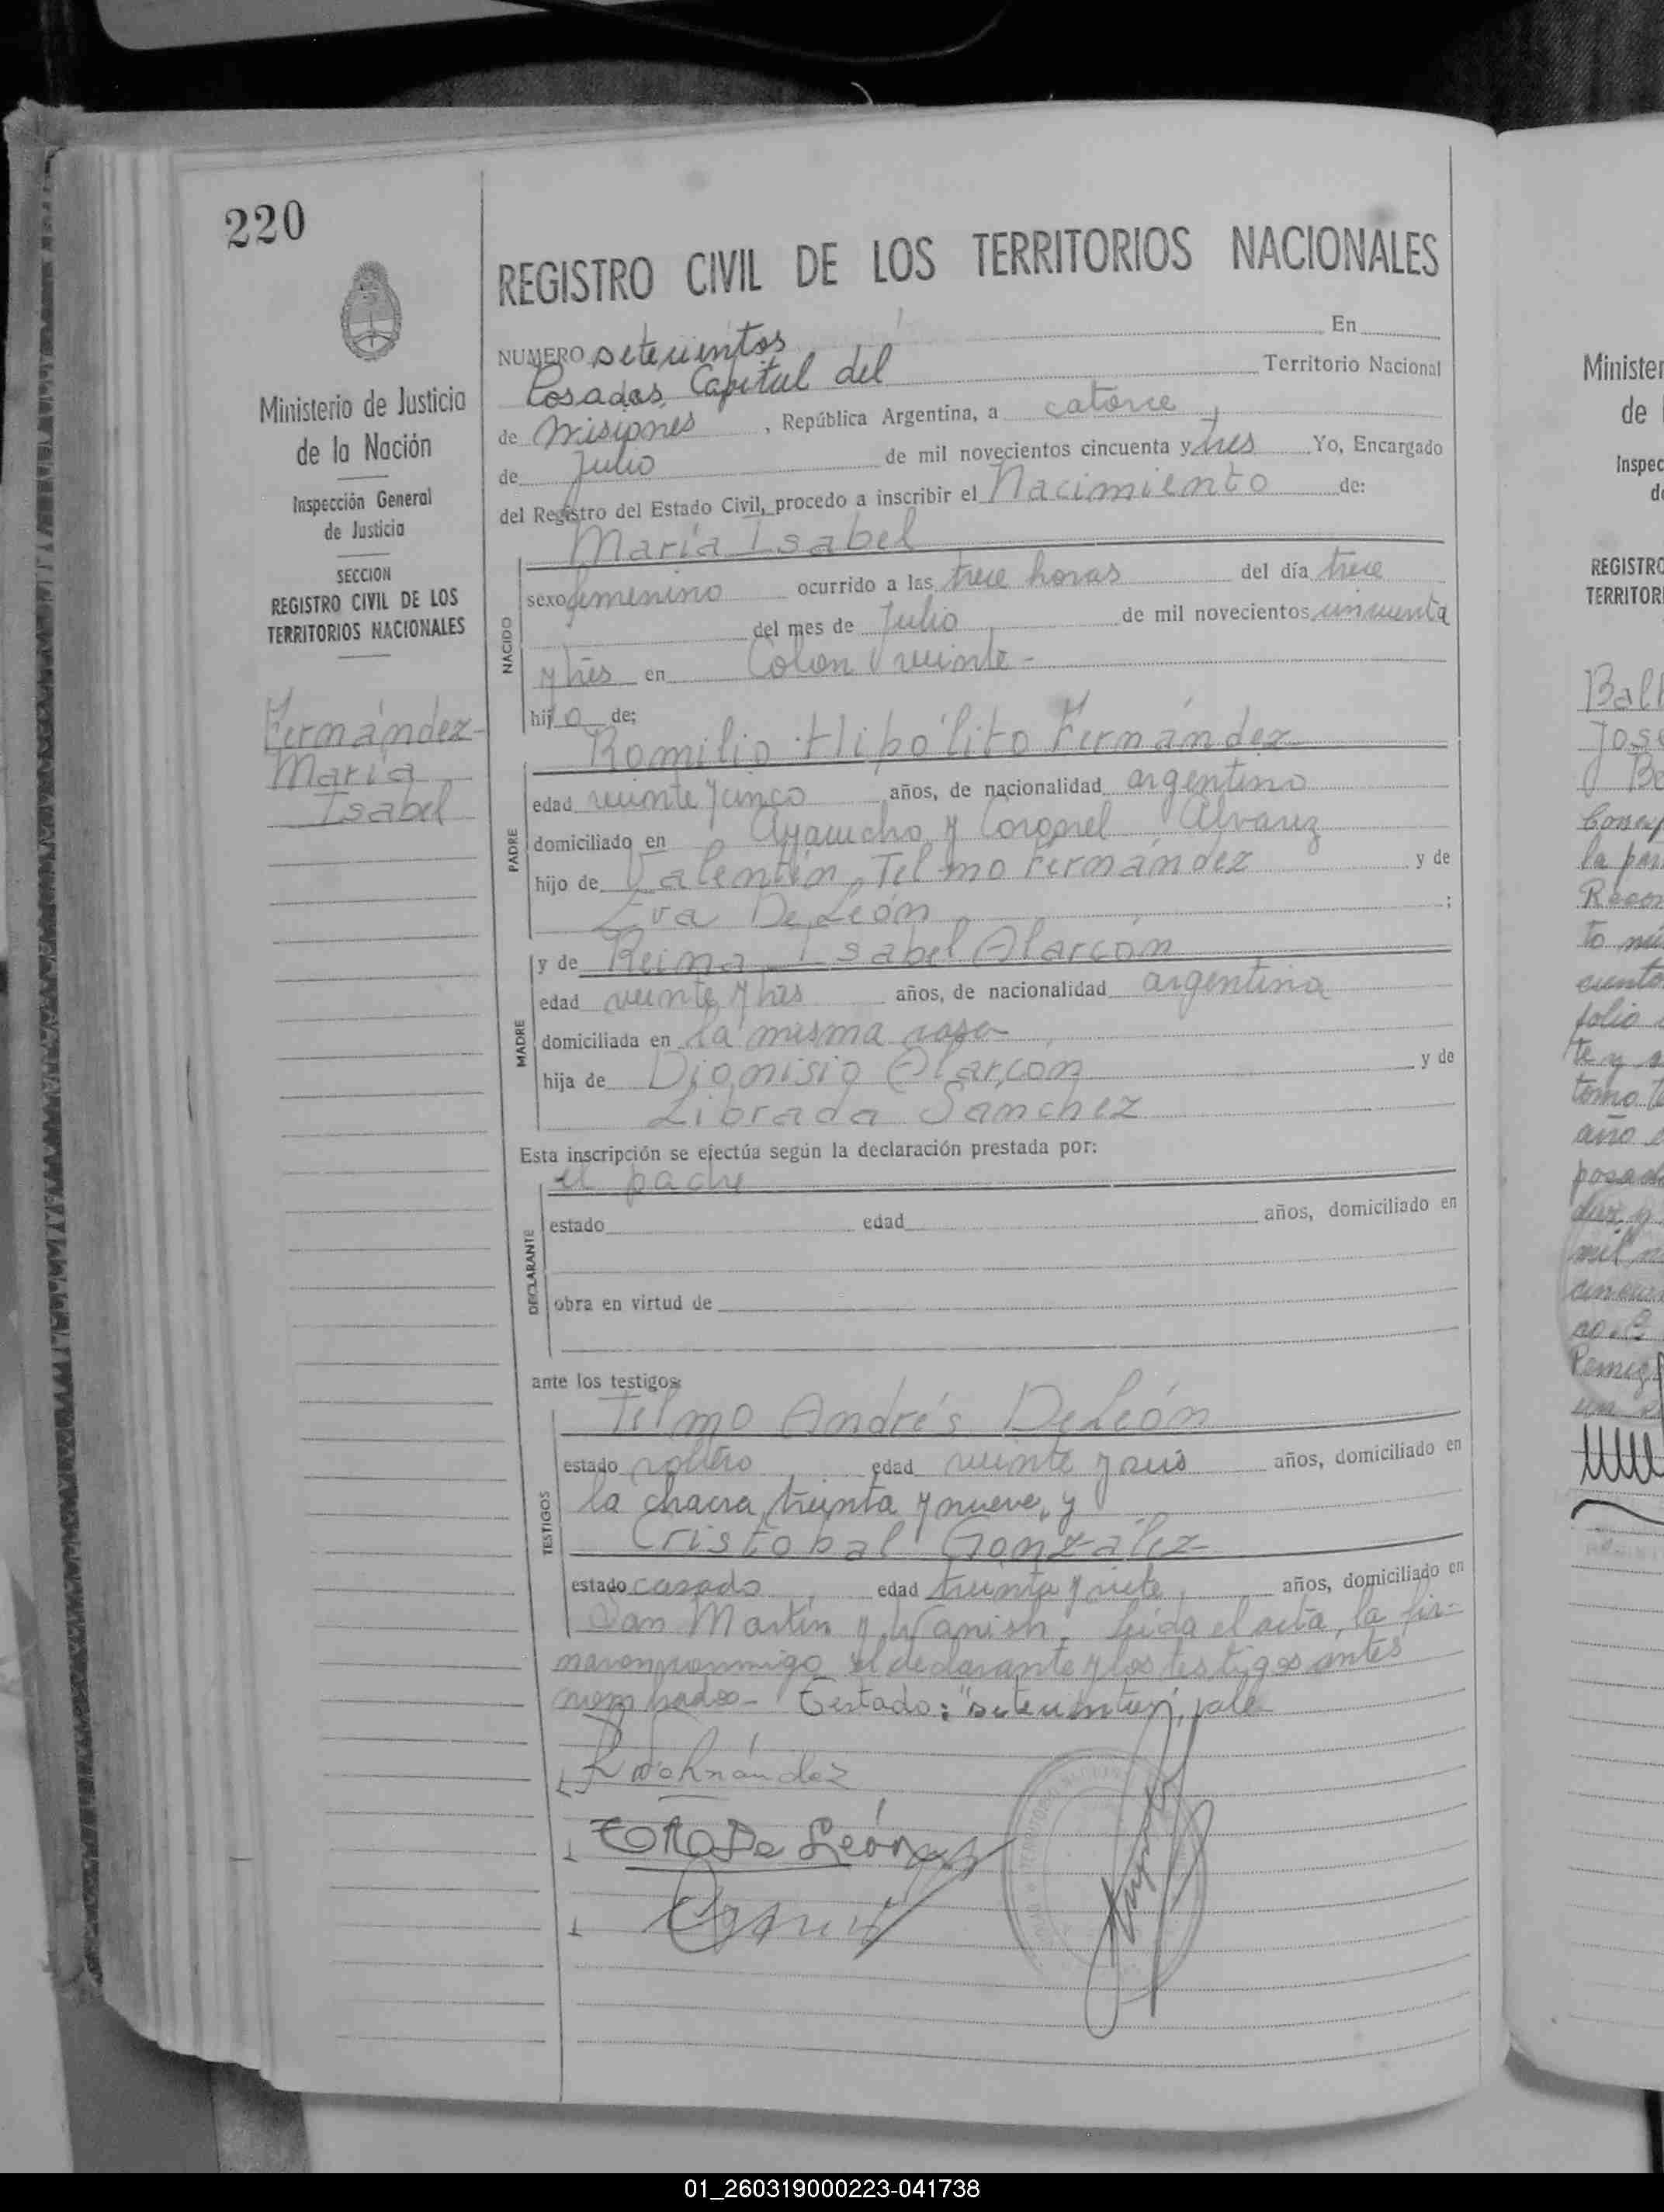 220
REGISTRO CIVIL DE LOS TERRITORIOS NACIONALES
Ministerio de Justicia
de la Nación
Inspección General
de Justicia
SECCION
REGISTRO CIVIL DE LOS
TERRITORIOS NACIONALES
Fernández
María
Isabel
NUMERO setecientos En
Posadas, Capital del Territorio Nacional
de Misiones, República Argentina, a catorce
de Julio de mil novecientos cincuenta y tres Yo, Encargado
del Registro del Estado Civil, procedo a inscribir el Nacimiento de:
NACIDO
María Isabel
sexo femenino ocurrido a las trece horas del día trece
del mes de Julio de mil novecientos cincuenta
y tres en Colon veinte-
hija de:
PADRE
Romilio Hipólito Fernández
edad veinte y cinco años, de nacionalidad argentino
domiciliado en Ayacucho y Coronel Alvarez
hijo de Valentín Telmo Fernández y de
Eva De León ;
MADRE
y de Reina Isabel Alarcón
edad veinte y tres años, de nacionalidad argentina
domiciliada en la misma casa
hija de Dionisio Alarcón y de
Librada Sanchez
Esta inscripción se efectúa según la declaración prestada por:
DECLARANTE
el padre
estado edad años, domiciliado en
obra en virtud de
ante los testigos:
TESTIGOS
Telmo Andrés DeLeón
estado soltero edad veinte y seis años, domiciliado en
la chacra treinta y nueve, y
Cristobal González
estado casado, edad treinta y siete, años, domiciliado en
San Martín y . Leída el acta, la fir-
maron conmigo el declarante y los testigos antes
nombrados- Testado: "setecientos", vale
De León
Minister
de
Inspec
REGISTRO
TERRITOR
José
la
tomo
año
01_260319000223-041738